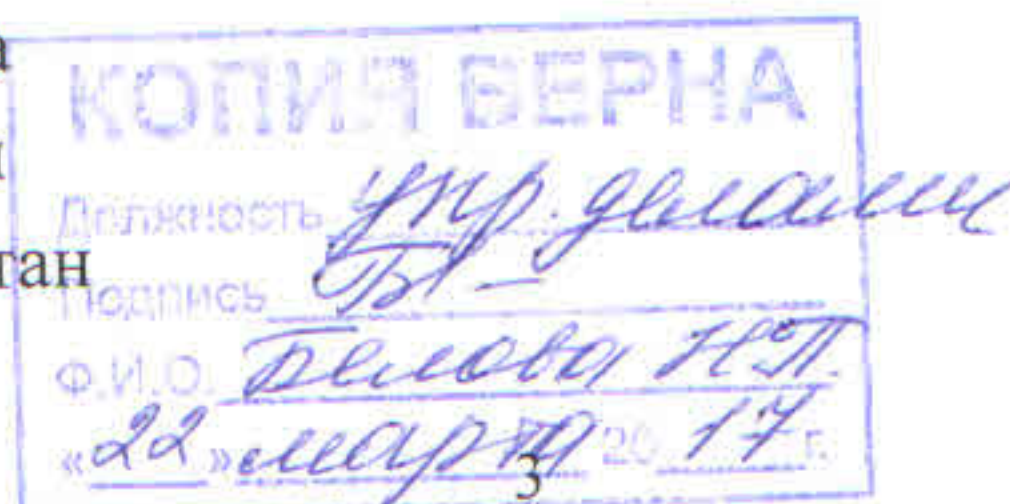 а
КОПИЯ ВЕРНА
Должность упр. делами
тан
Подпись
Ф.И.О. Белова Н.П.
«22» марта 2017 г.
3